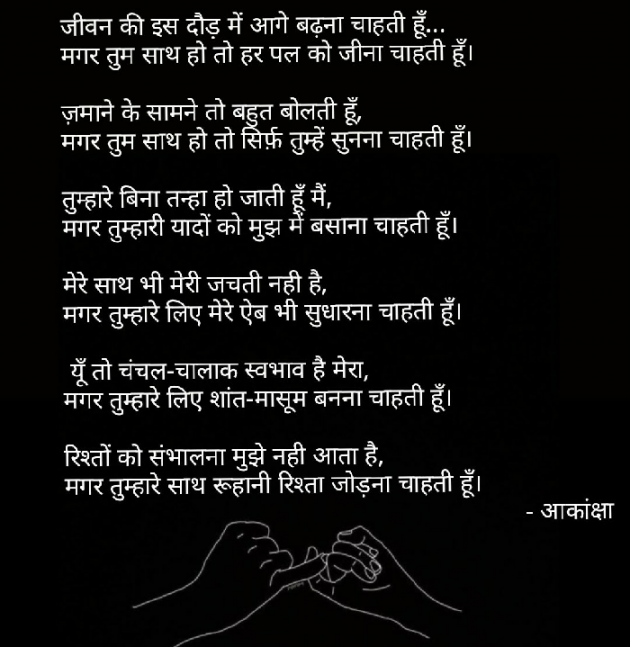 जीवन की इस दौड़ में आगे बढ़ना चाहती हूँ...
मगर तुम साथ हो तो हर पल को जीना चाहती हूँ।
ज़माने के सामने तो बहुत बोलती हूँ,
मगर तुम साथ हो तो सिर्फ़ तुम्हें सुनना चाहती हूँ।
तुम्हारे बिना तन्हा हो जाती हूँ मैं,
मगर तुम्हारी यादों को मुझ में बसाना चाहती हूँ।
मेरे साथ भी मेरी जचती नही है,
मगर तुम्हारे लिए मेरे ऐब भी सुधारना चाहती हूँ।
यूँ तो चंचल-चालाक स्वभाव है मेरा,
मगर तुम्हारे लिए शांत-मासूम बनना चाहती हूँ।
रिश्तों को संभालना मुझे नही आता है,
मगर तुम्हारे साथ रूहानी रिश्ता जोड़ना चाहती हूँ।
- आकांक्षा